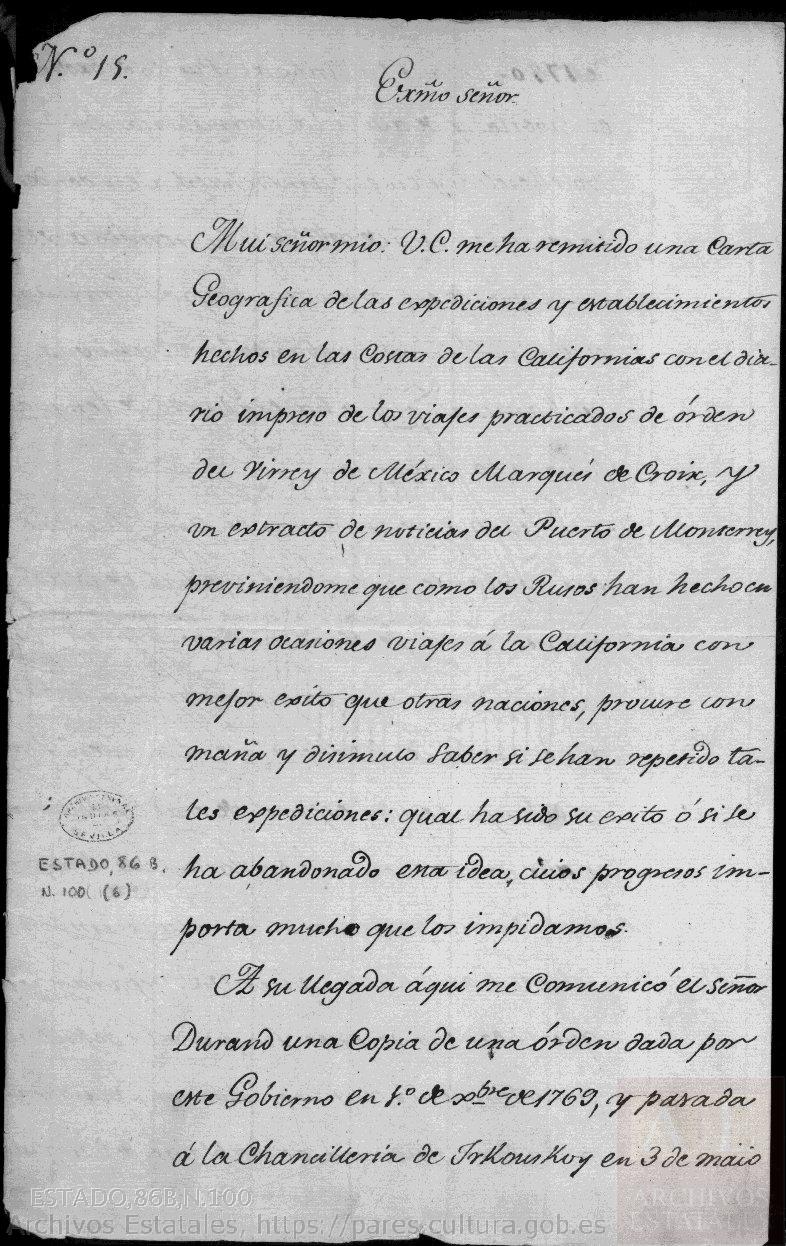 N.º 15.
Exmõ señor.
Mui señor mio: V.E. me ha remitido una Carta
Geografica de las expediciones y establecimientos
hechos en las Costas de las Californias con el dia-
rio impreso de los viajes practicados de órden
del Virrey de México Marqués de Croix, y
un extracto de noticias del Puerto de Monterrey,
previniendome que como los Rusos han hecho en
varias ocasiones viajes á la California con
mejor exito que otras naciones, procure con
maña y disimulo saber si se han repetido ta-
les expediciónes: qual ha sido su exito ó si se
ha abandonado esta idea, cuios progresos im-
porta mucho que los impidamos.
A su llegada áqui me Comunicó el señor
Durand una Copia de una órden dada por
este Gobierno en 1.º de xbre de 1769, y pasada
á la Chancillería de Irkouskoy en 3 de maio
SEVILLA
ESTADO, 86 B,
N. 100 (6)
ESTADO,86B,N.100
Archivos Estatales, https://pares.cultura.gob.es
ARCHIVOS
ESTATALES